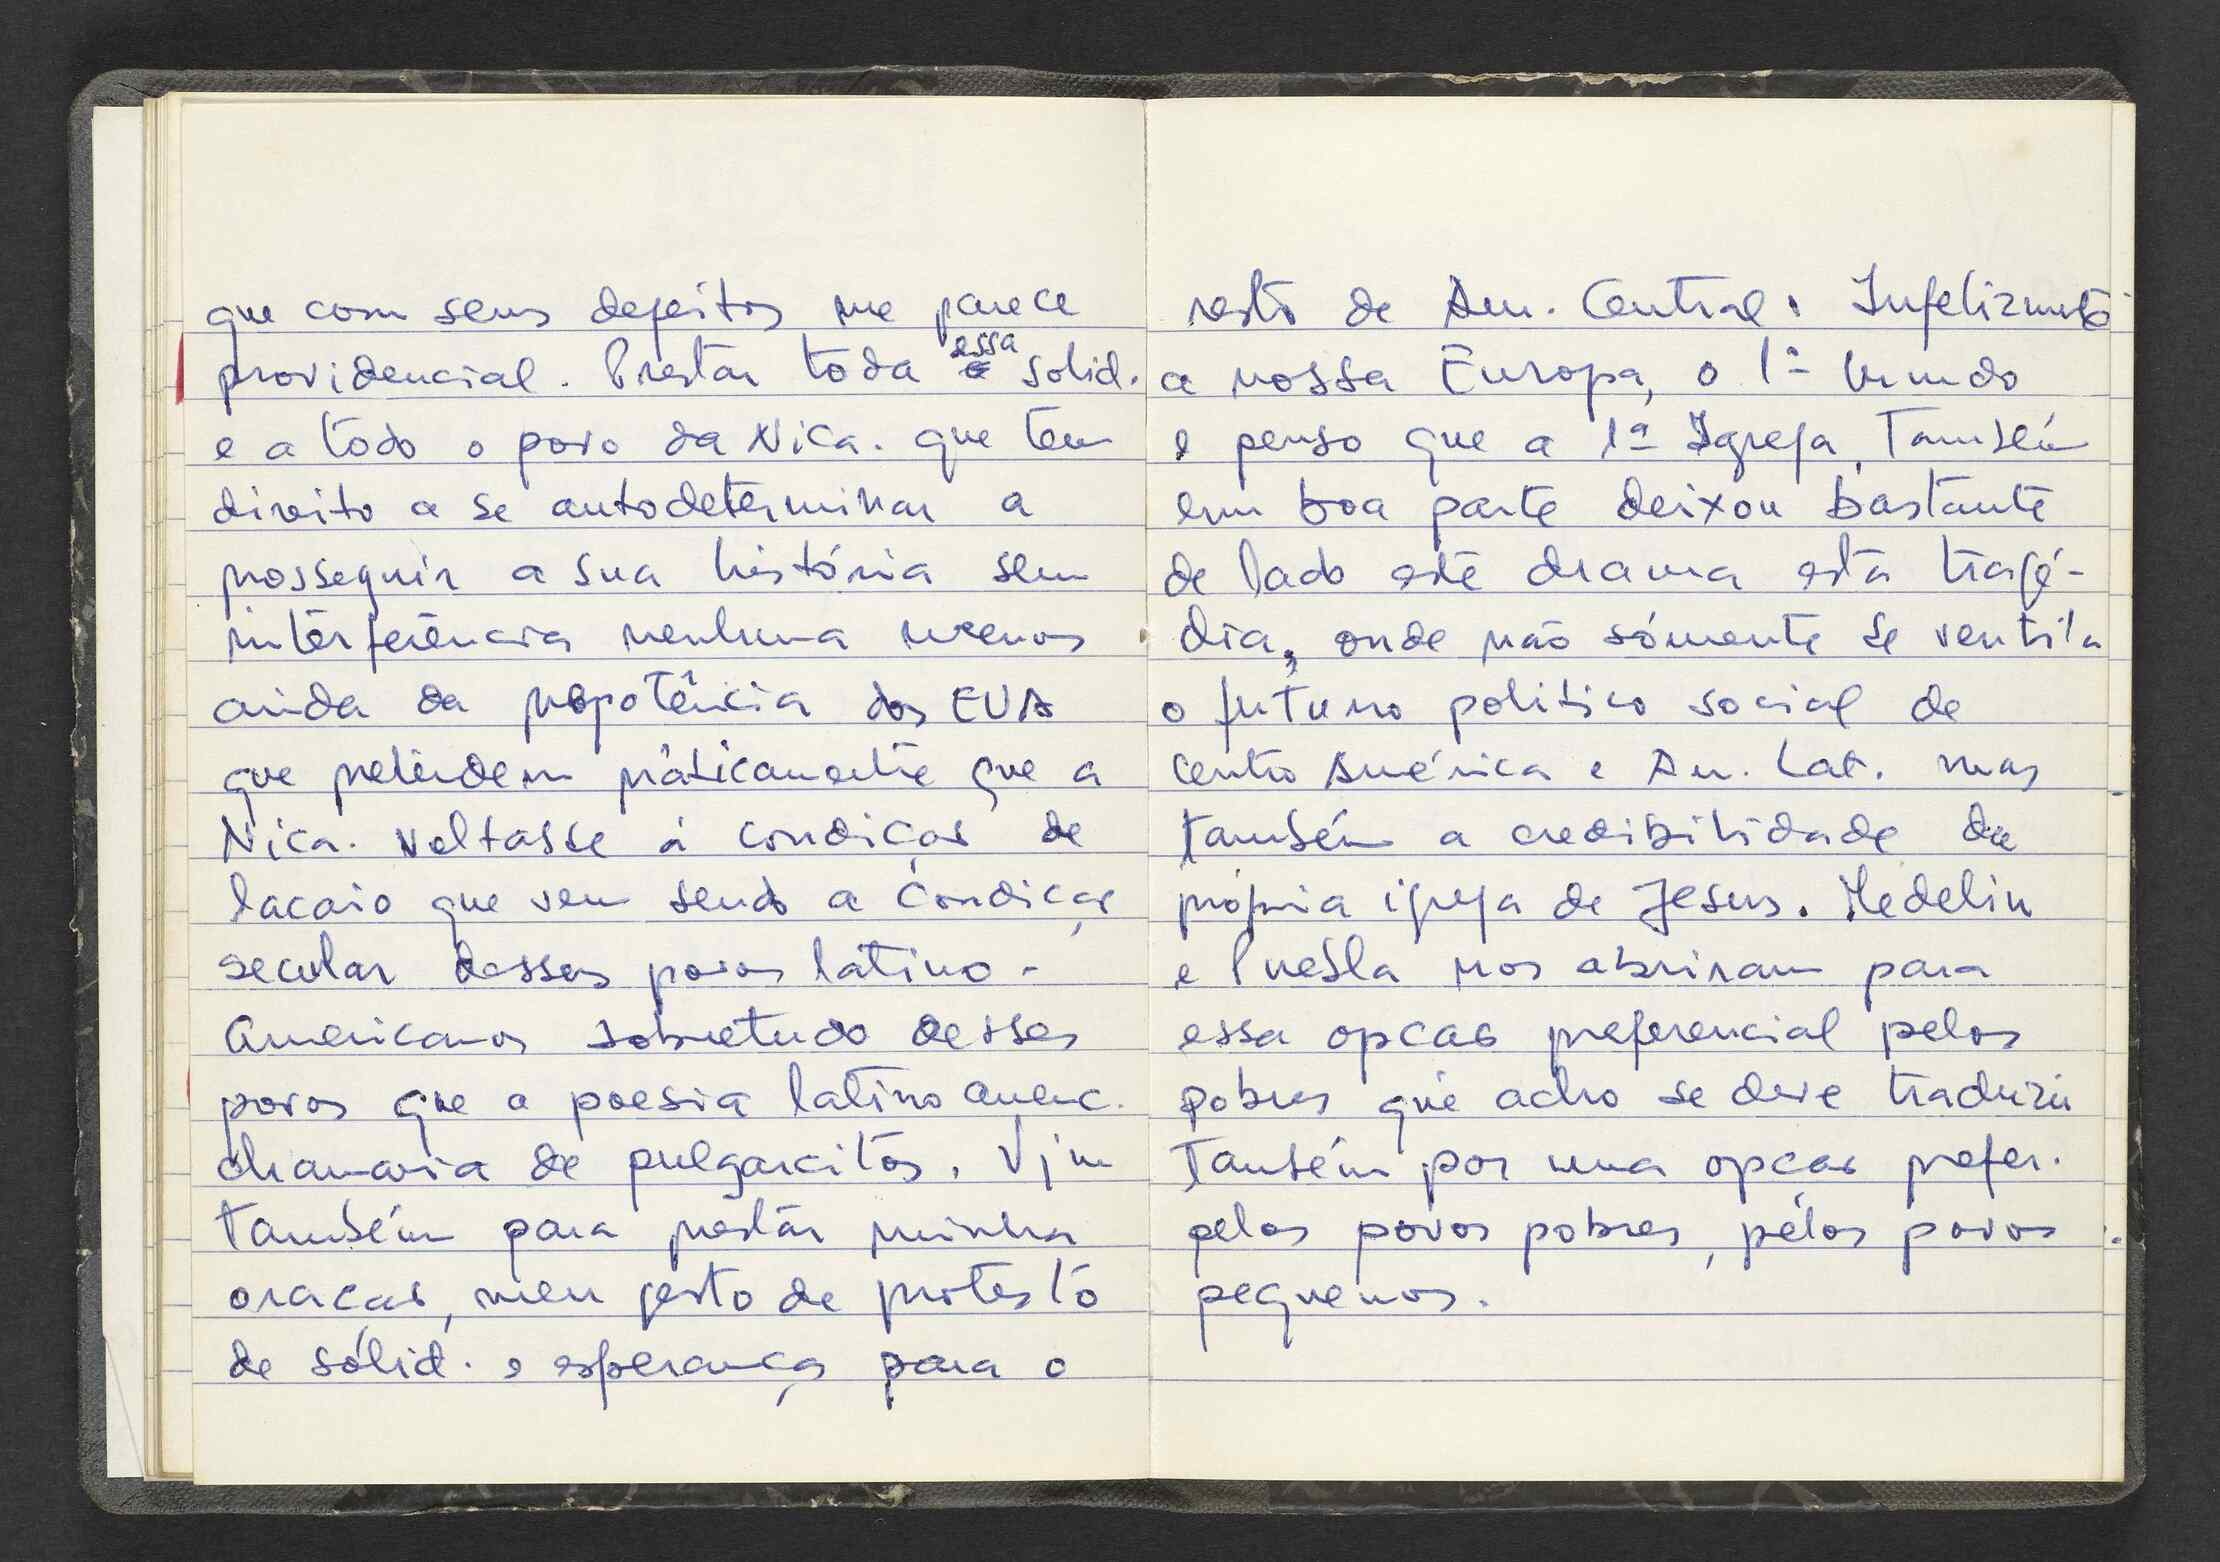 que com seus defeitos me parece
providencial. Prestar toda essa solid.
e a todo o povo da Nica. que tem
direito a se autodeterminar a
prosseguir a sua história sem
interferência nenhuma menos
ainda da prepotência dos EUA
que pretendem práticamente que a
Nica. voltasse á condiçao de
lacaio que vem sendo a condiçao
secular desses povos latino-
americanos sobretudo desses
povos que a poesia latino americ.
chamaria de pulgarcitos. Vim
também para prestar minha
oraçao, meu gesto de protesto
de solid. e esperança para o
resto de Am. Central. Infelizmente
a nossa Europa, o 1º Mundo
e penso que a 1ª Igreja, também
em boa parte deixou bastante
de lado este drama esta tragé-
dia, onde não sómente se ventila
o futuro politico social de
Centro América e Am. Lat. mas
também a credibilidade da
própria igreja de Jesus. Medelin
e Puebla nos abriram para
essa opcao preferencial pelos
pobres que acho se deve traduzir
também por uma opcao prefer.
pelos povos pobres, pelos povos
pequenos.